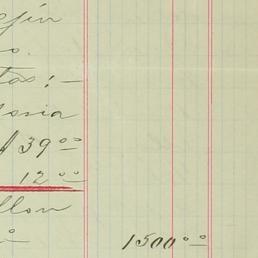 ejin
s.
tas:—
osia
$ 39 00
12 00
llon
1500 00